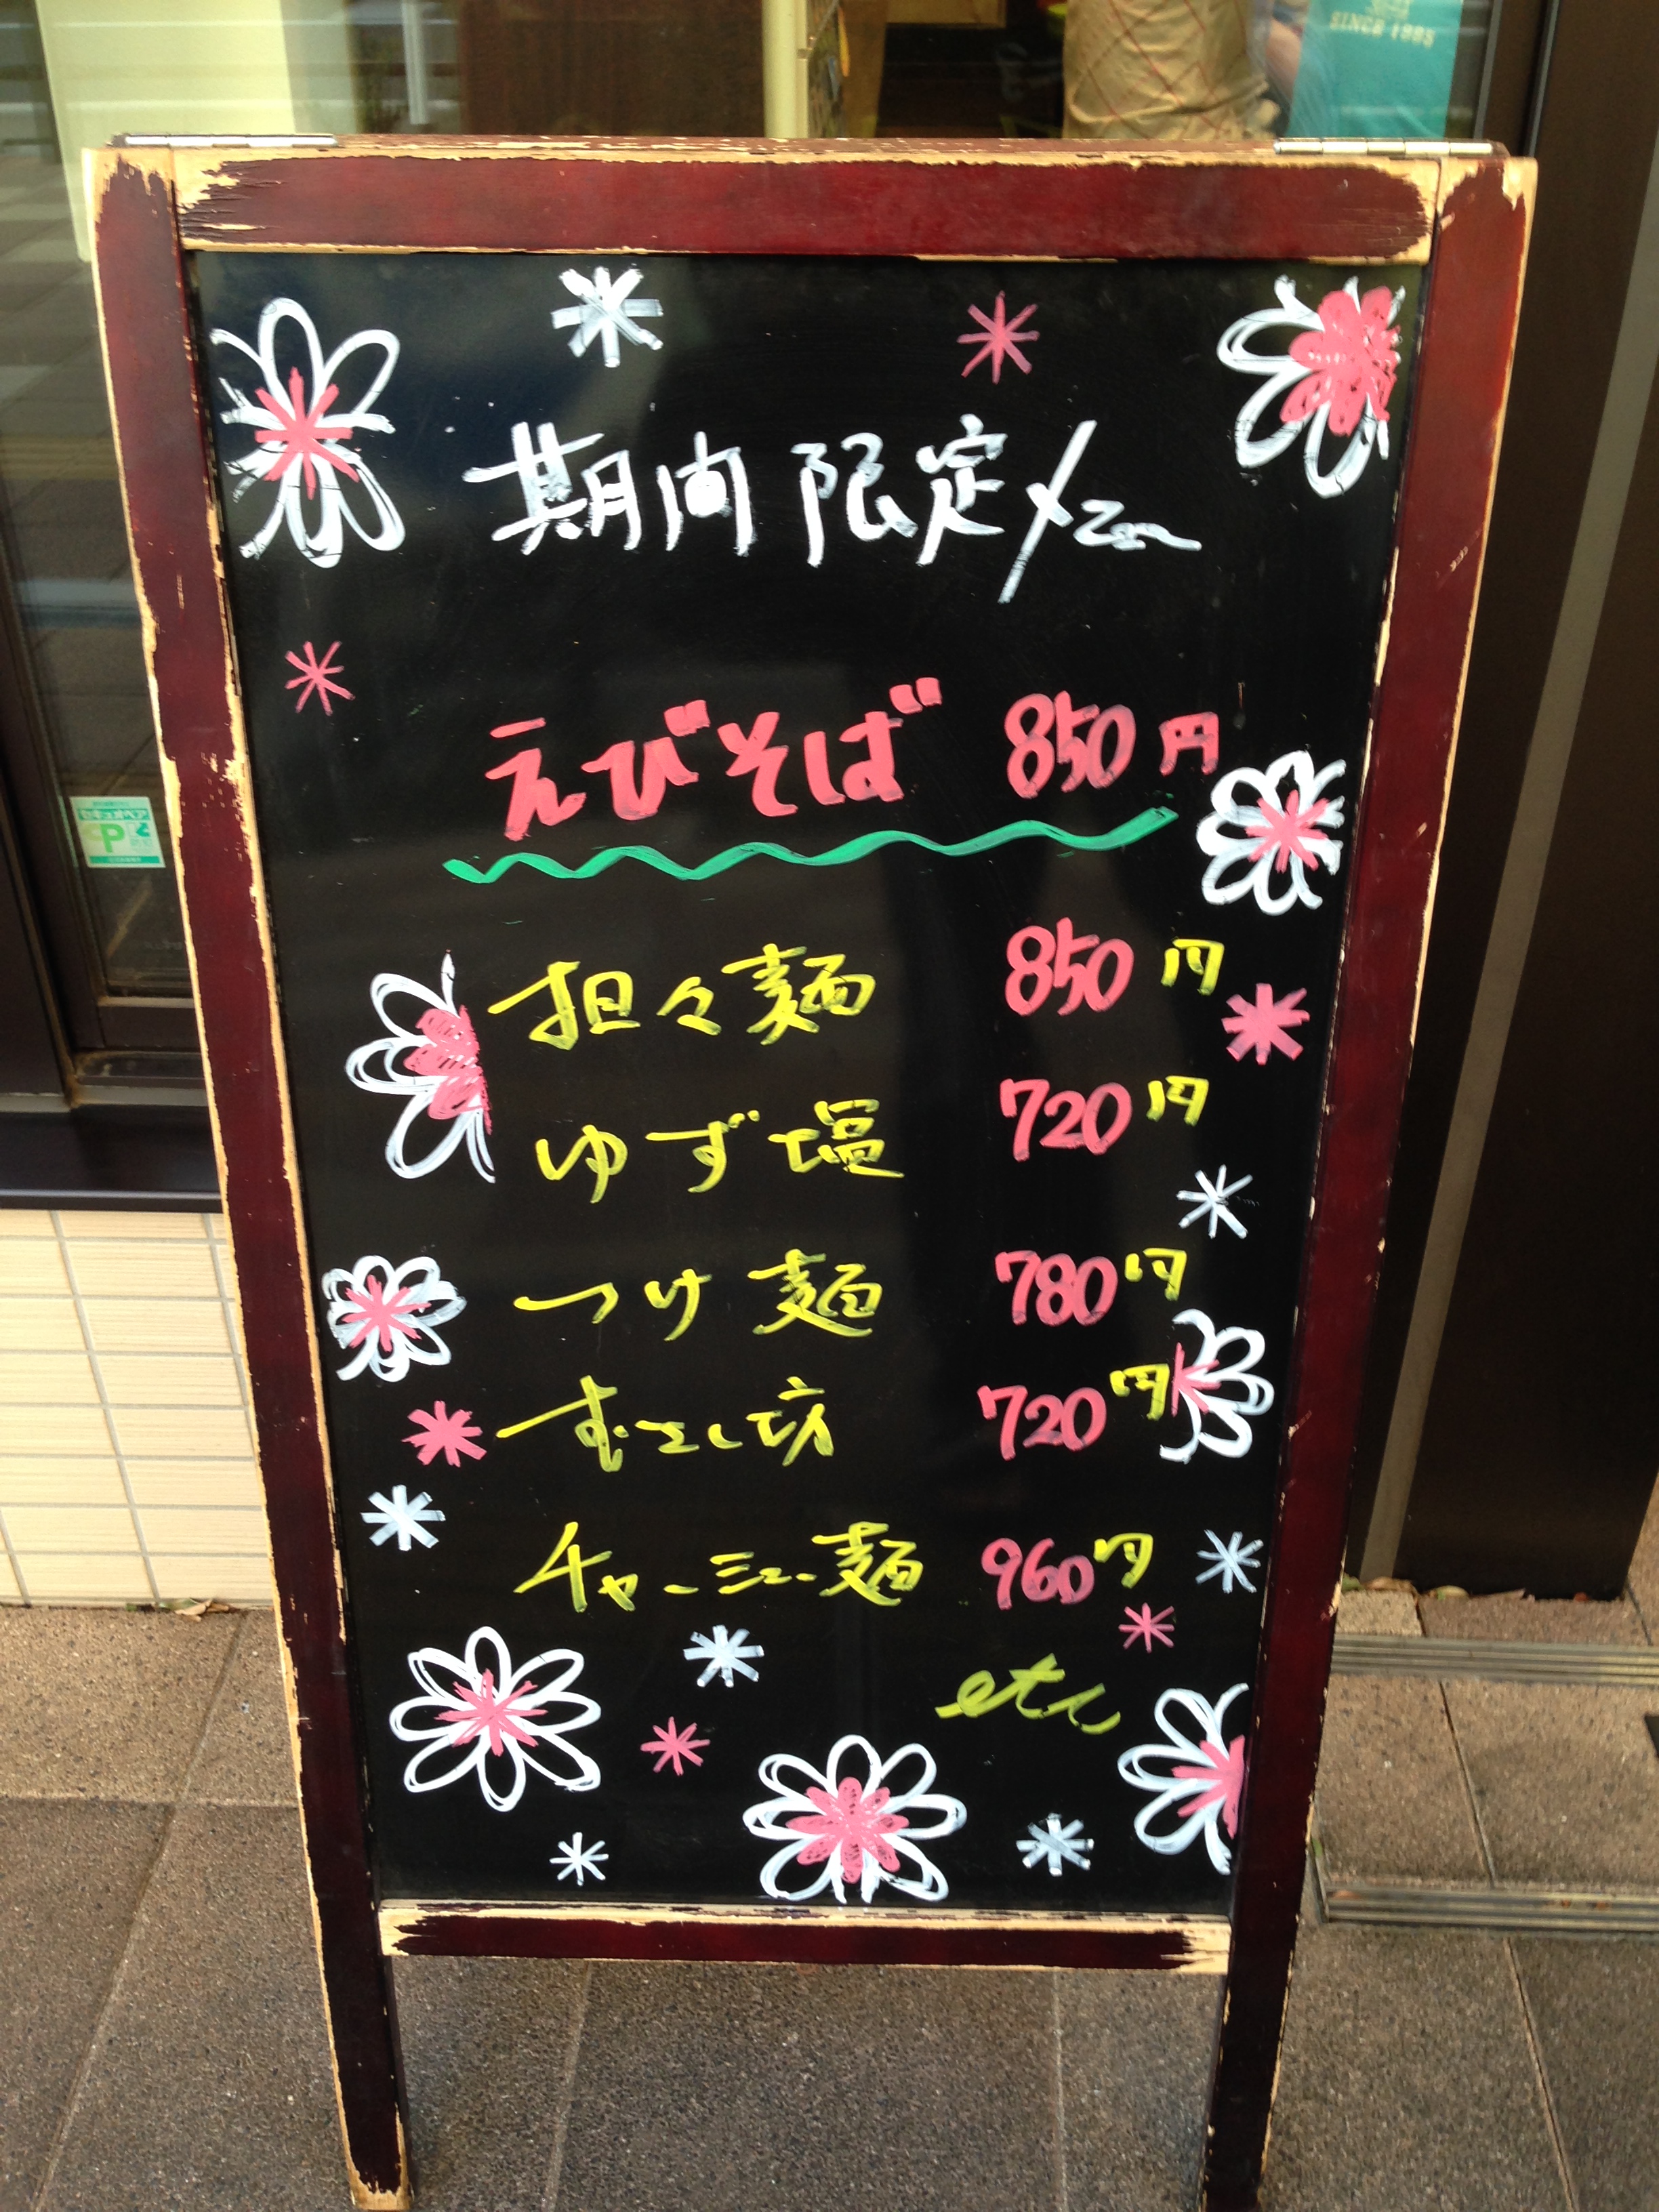 SINCE 1995
期間限定メニュー
えびそば 850円
担々麺 850円
ゆず塩 720円
つけ麺 780円
むさし坊 720円
チャーシュー麺 960円
etc